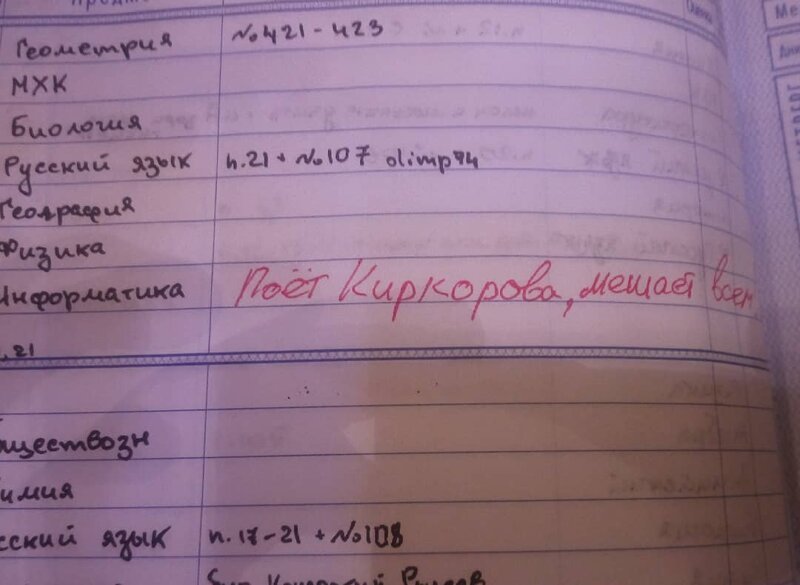 Геометрия №421-423
МХК
Биология
Русский язык п.21 + №107 olimp74
География
Физика
Информатика Поёт Киркорова, мешает всем
21
бществозн
имия
сский язык п.17-21 + №108